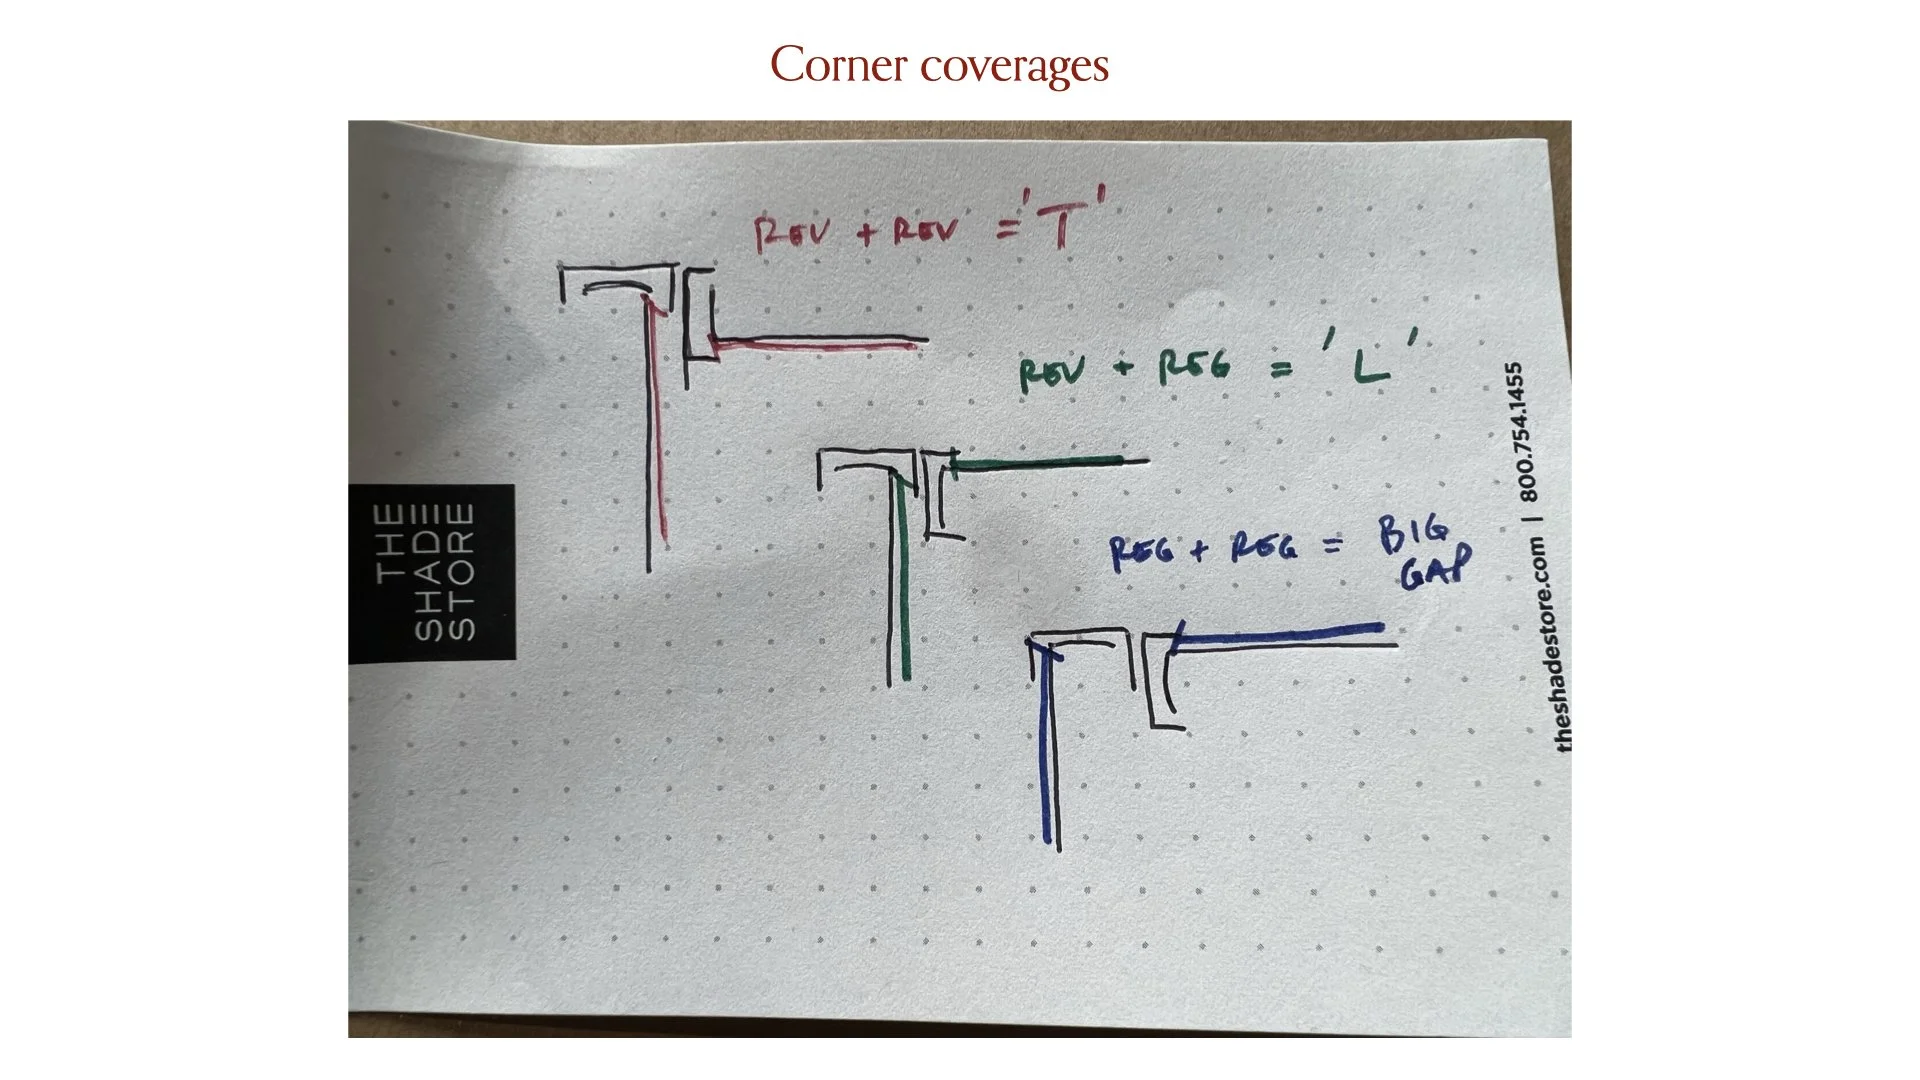 Corner coverages
REV + REV = 'T'
REV + REG = 'L'
REG + REG = BIG
GAP
THE
SHADE
STORE
theshadestore.com | 800.754.1455